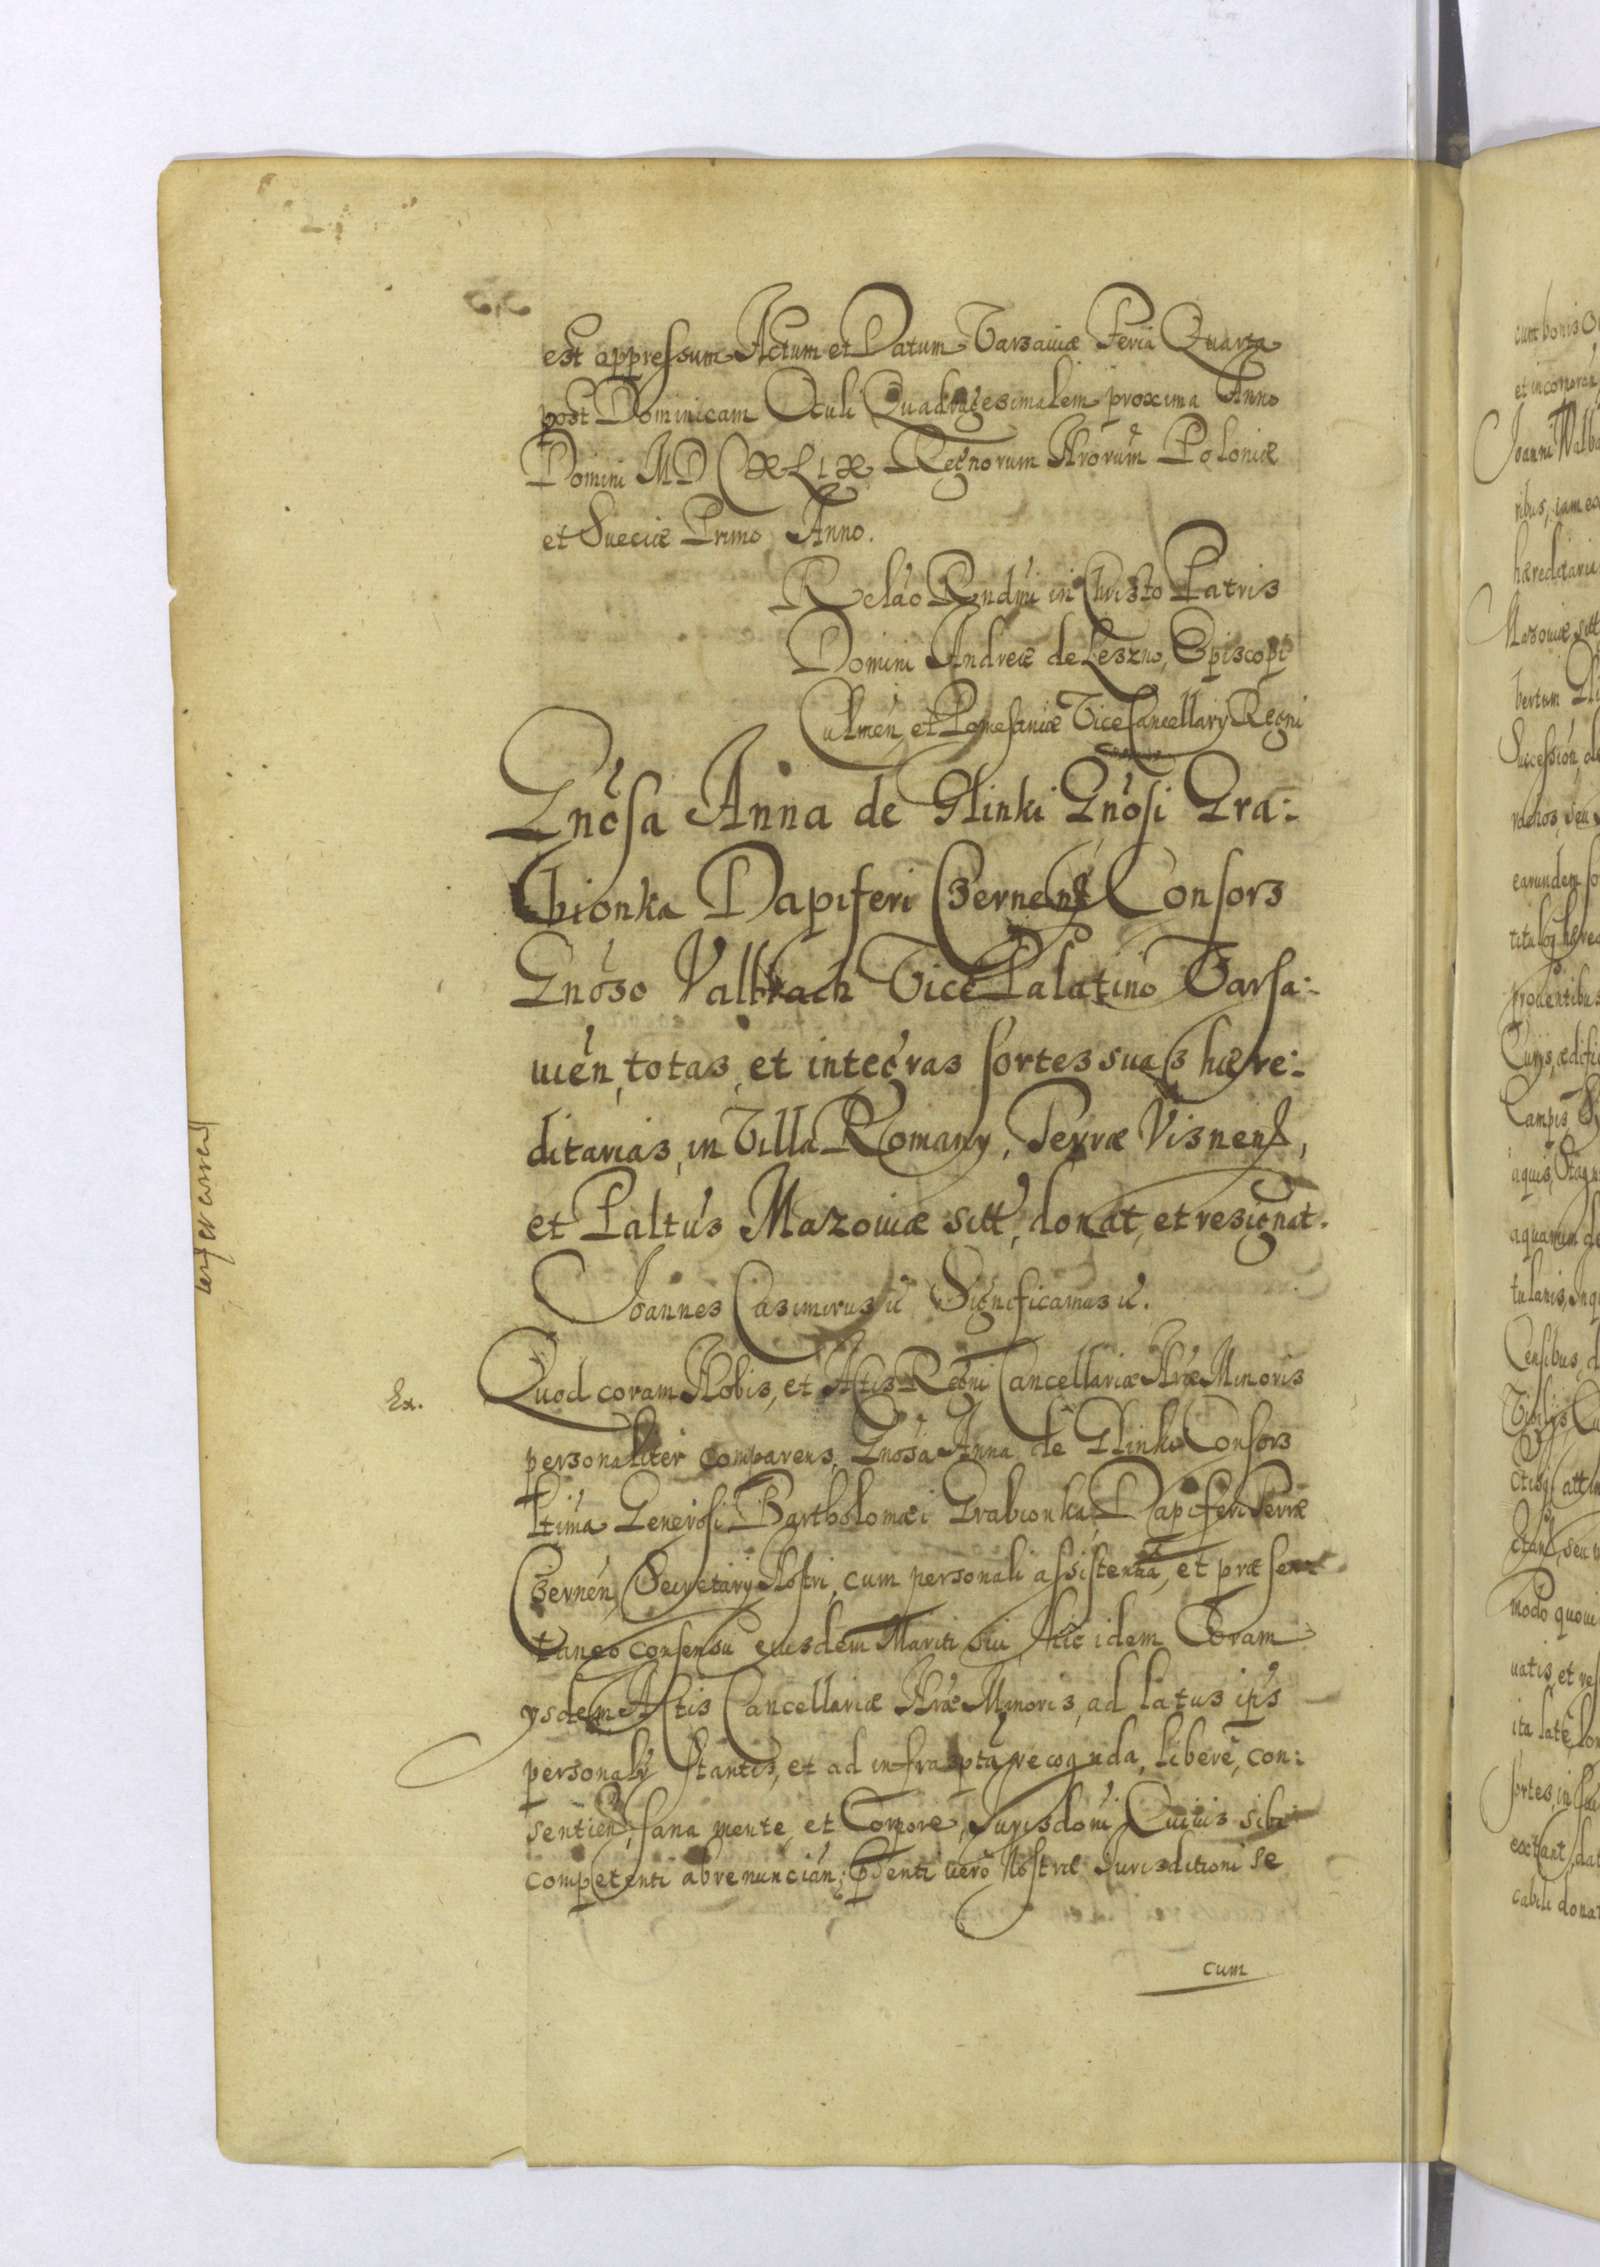 est appressum Actum et Datum Varsaviæ Feria Quarta
post Dominicam Oculi Quadragesimalem proxima Anno
Domini MDCXLIX Regnorum Nrorum Poloniæ
et Sueciæ Primo Anno.
Relao Rndmi in Christo Patris
Domini Andreæ de Leszno, Episcopi
Culmen, et Pomesaniæ Vice Cancellary Regni
Gnosa Anna de Glinki Gnosi Gra:
bionka Dapiferi Czernens Consors
Gnoso Valbrach Vice Palatino Varsa:
uien, totas, et integras sortes suas hære:
ditarias, in Villa Romany, Terræ Visnens,
et Paltus Mazoviæ sitt, donat, et resignat.
Joannes Casimirus ic Significamus ic.
Ex.
Quod coram Nobis, et Actis Regni Cancellariæ Nræ Minoris
personaliter comparens, Gnosa Anna de Glinki Consors
Ltima Generosi Bartholomæi Grabionka Dapiferi Terræ
Czernen, Secretary Nostri, cum personali assistentia, et præsen:
taneo consensu eiusdem Mariti sui, hic idem Coram
ysdem Actis Cancellariæ Nræ Minoris, ad latus ips
personalr stantis, et ad infrasptа recognda, liberè, con:
sentien, sana mente, et Corpore, Jurisdoni Cuiuis sibi
competenti abrenuncian; pnti uero Nostræ Jurisditioni se
cum
cum bonis
Joanni Walba
ribus, iam ex
hæreditarii
Mazoviæ sitt
bertum Gli
Succession, de
earundem so
prouentibus
Curys, ædifi
Campis
aquis, Stagn
aquarum de
Censibus
modo quoui
uatis, et res
ita late lon
sortes, in
extant, dat
cabili donat